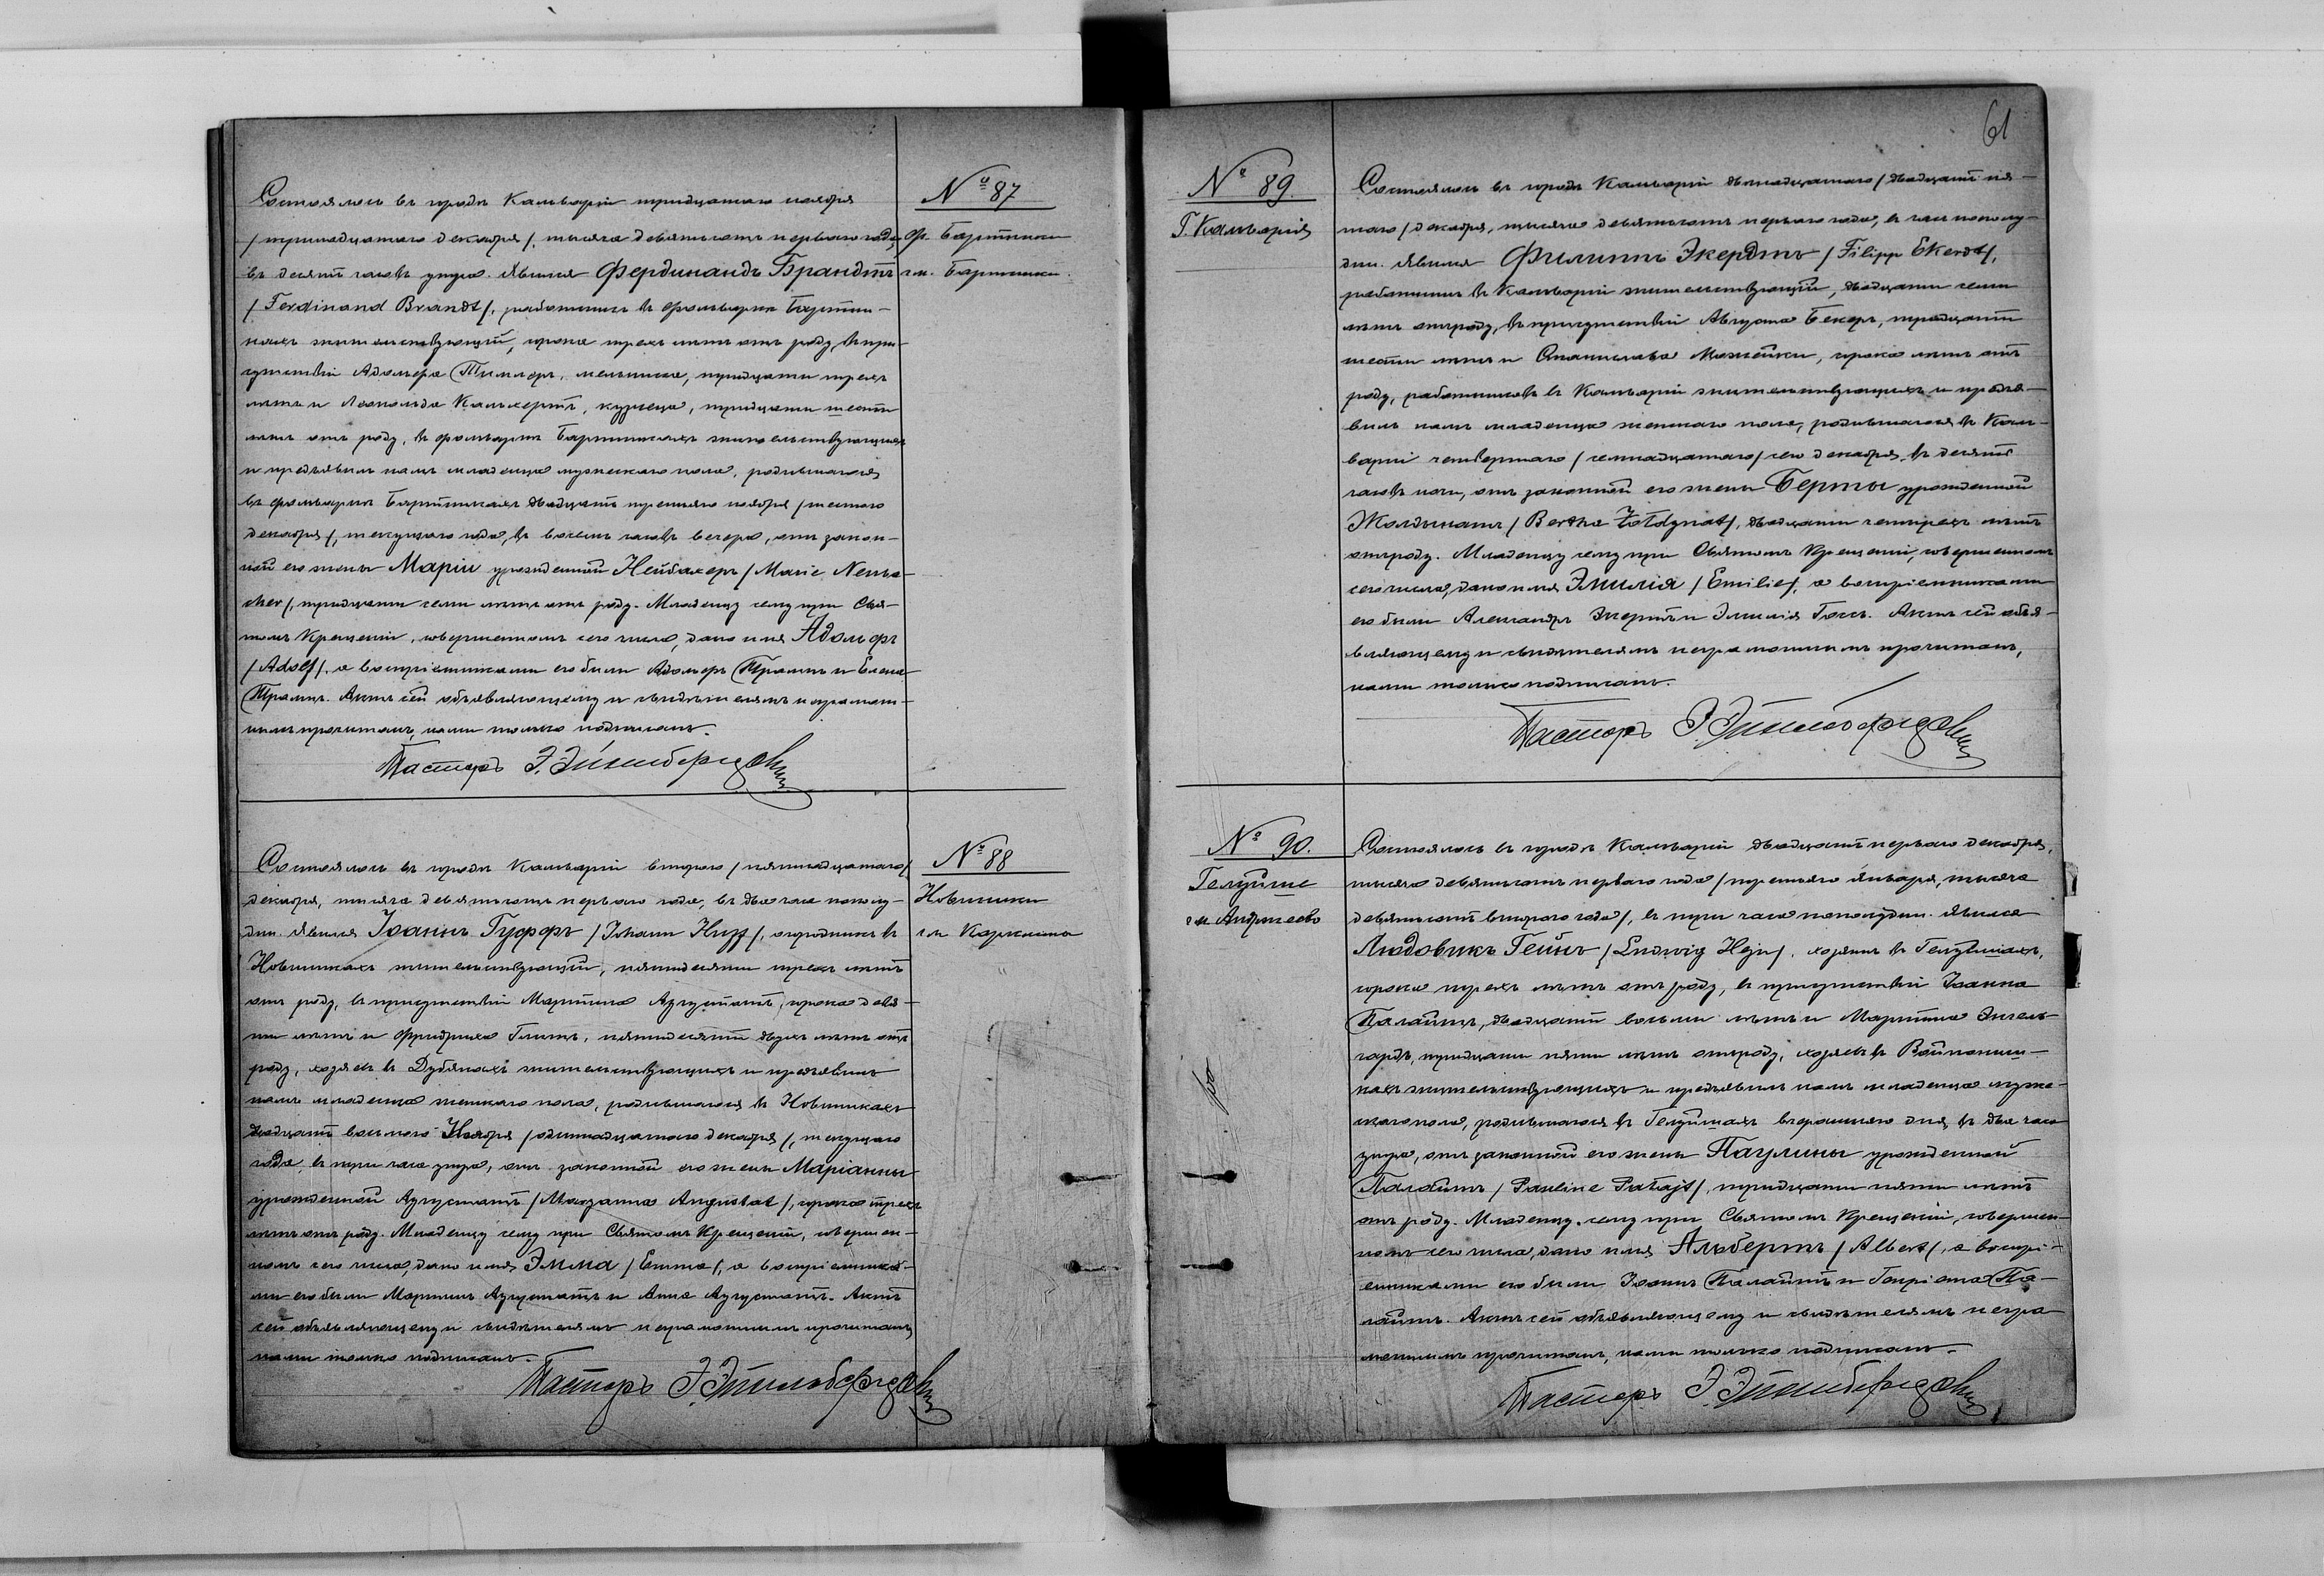 № 87
ф. Бартники
гм. Бартники.
Состоялось въ городѣ Кальваріи тридцатаго ноября
/тринадцатаго декабря/, тысяча девятьсотъ перваго года,
въ десять часовъ утра. Явился Фердинандъ Брандтъ
/Ferdinand Brandt/, работникъ въ фольваркѣ Бартни-
кахъ жительствующій, сорока трехъ лѣтъ отъ роду, въ при-
сутствіи Адольфа, мельника, тридцати трехъ
лѣтъ и Леопольда, кузнеца, тридцати шести
лѣтъ отъ роду, въ фольваркѣ Бартникахъ жительствующихъ
и предъявилъ намъ младенца мужескаго пола, родившагося
въ фольваркѣ Бартникахъ двадцать третьяго ноября /шестого
декабря/, текущаго года, въ восемь часовъ вечера, отъ закон-
ной его жены Маріи урожденной Нейбахеръ /Marie Neuba-
cher/, тридцати семи лѣтъ отъ роду. Младенцу сему при Свя-
томъ Крещеніи, совершенномъ сего числа, дано имя Адольфъ
/Adolf/, а воспріемниками его были Адольфъ и Елена
Актъ сей объявляющему и свидѣтелямъ неграмот-
нымъ прочитанъ, нами только подписанъ.
Пасторъ Э.
№ 88
Новиники
гм
Состоялось въ городѣ Кальваріи второго /пятнадцатаго/
декабря, тысяча девятьсотъ перваго года, въ два часа пополу-
дни. Явился Іоаннъ Гуффъ /Johann Huff/, огородникъ въ
Новиникахъ жительствующій, пятидесяти трехъ лѣтъ
отъ роду, въ присутствіи Мартина Аугустатъ, сорока девя-
ти лѣтъ и Фридриха, пятидесяти двухъ лѣтъ отъ
роду, хозяевъ въ жительствующихъ и предъявилъ
намъ младенца женскаго пола, родившагося въ Новиникахъ
двадцать восьмого Ноября /одиннадцатаго декабря/, текущаго
года, въ три часа утра, отъ законной его жены Маріанны
урожденной Аугустатъ /Maryanna Augustat/, сорока трехъ
лѣтъ отъ роду. Младенцу сему при Святомъ Крещеніи, совершен-
номъ сего числа, дано имя Эмма /Emma/, а воспріемника-
ми его были Мартинъ Аугустатъ и Анна Аугустатъ. Актъ
сей объявляющему и свидѣтелямъ неграмотнымъ прочитанъ,
нами только подписанъ.
Пасторъ Э.
61
№ 89.
Г. Кальварія
Состоялось въ городѣ Кальваріи двѣнадцатаго /двадцать пя-
таго/ декабря, тысяча девятьсотъ перваго года, въ часъ пополу-
дни. Явился Филиппъ Экердтъ /Filipp Ekerdt/,
работникъ въ Кальваріи жительствующій, двадцати семи
лѣтъ отъ роду, въ присутствіи Августа Бекеръ, тридцати
шести лѣтъ и Станислава Можейки, сорока лѣтъ отъ
роду, работниковъ въ Кальваріи жительствующихъ и предъя-
вилъ намъ младенца женскаго пола, родившагося въ Каль-
варіи четвертаго /семнадцатаго/ сего декабря, въ десять
часовъ ночи, отъ законной его жены Берты урожденной
Жолдынатъ /Bertha Żołdynat/, двадцати четырехъ лѣтъ
отъ роду. Младенцу сему при Святомъ Крещеніи, совершенномъ
сего числа, дано имя Эмилія /Emilie/, а воспріемниками
его были Александръ Экертъ и Эмилія. Актъ сей объя-
вляющему и свидѣтелямъ неграмотнымъ прочитанъ,
нами только подписанъ.
Пасторъ Э.
№ 90.
Гелуйше
гм Андржеево
Состоялось въ городѣ Кальваріи двадцать перваго декабря,
тысяча девятьсотъ перваго года /третьяго января, тысяча
девятьсотъ второго года/, въ три часа пополудни. Явился
Людовикъ Гейнъ /Ludwig Hejn/, хозяинъ въ Гелуйшахъ,
сорока трехъ лѣтъ отъ роду, въ присутствіи Іоанна
Палайтъ, двадцати восьми лѣтъ и Мартина Энгель-
гардъ, тридцати пяти лѣтъ отъ роду, хозяевъ въ
жительствующихъ и предъявилъ намъ младенца муже-
скаго пола, родившагося въ Гелуйшахъ вчерашняго дня, въ два часа
утра, отъ законной его жены Паулины урожденной
Палайтъ /Pauline Pałajt/, тридцати пяти лѣтъ
отъ роду. Младенцу сему при Святомъ Крещеніи, совершен-
номъ сего числа, дано имя Альбертъ /Albert/, а воспрі-
емниками его были Іоаннъ Палайтъ и Генріета Па-
лайтъ. Актъ сей объявляющему и свидѣтелямъ негра
мотнымъ прочитанъ, нами только подписанъ.
Пасторъ Э.